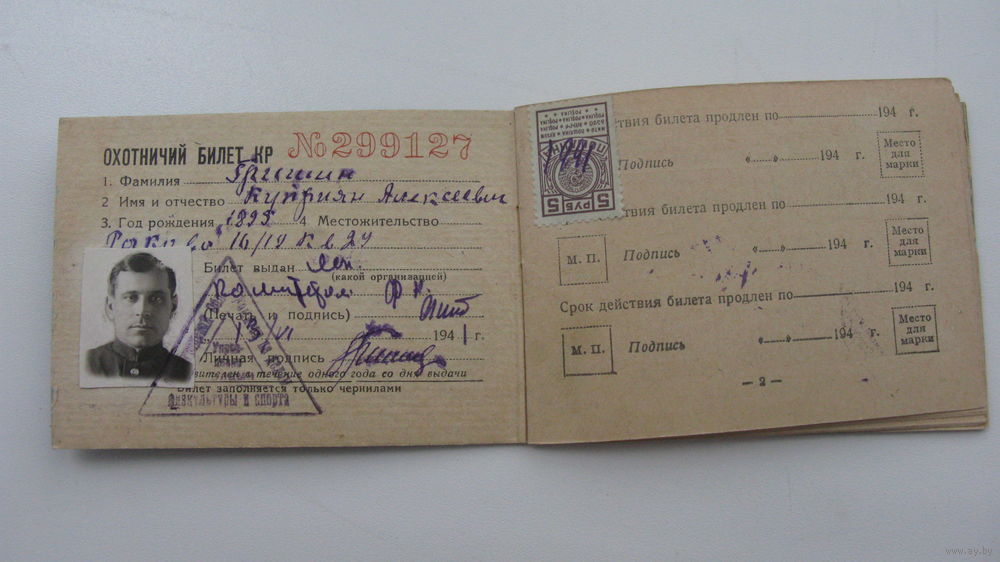 ОХОТНИЧИЙ БИЛЕТ КР №299127
1. Фамилия Гришин
2 Имя и отчество Куприян Алексеевич
3. Год рождения 1895 4 Местожительство
16/19 кв 24
Билет выдан Лен.
(какой организацией)
комитетом
(Печать и подпись)
1941 г.
Личная подпись
вителен в течение одного года со дня выдачи
Билет заполняется только чернилами
физкультуры и спорта
5 РУБ 5
1941
ствия билета продлен по 194 г.
Подпись „ “ 194 г.
Место для марки
ствия билета продлен по 194 г.
М. П. Подпись „ “ 194 г.
Место для марки
Срок действия билета продлен по 194 г.
М. П. Подпись „ “ 194 г.
Место для марки
— 2 —
www.ay.by